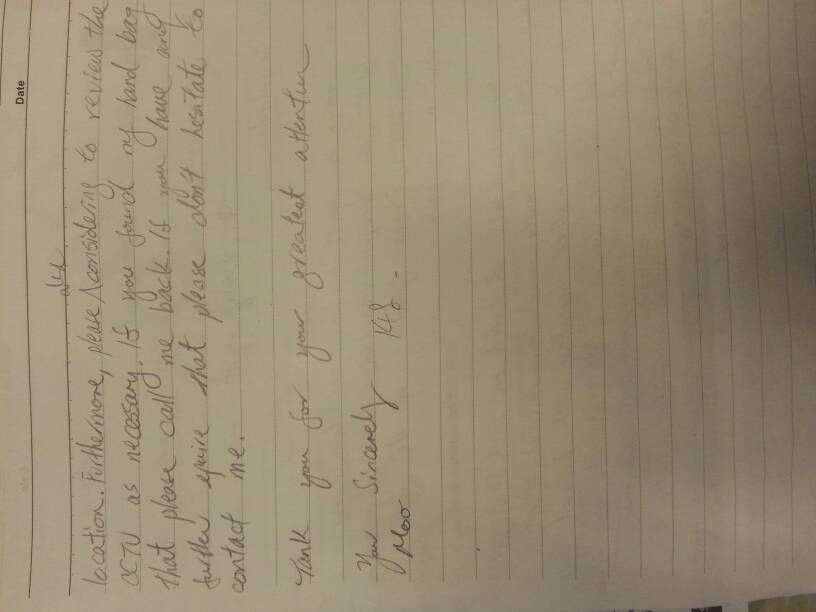 Date
also
location. Furthermore, please ∧ considering to review the
CCTV as necessary. If you found my hand bag
that please call me back. If you have and
further equire that please don't hesitate to
contact me.
Tank you for your greatest attention
your Sincerely 148.